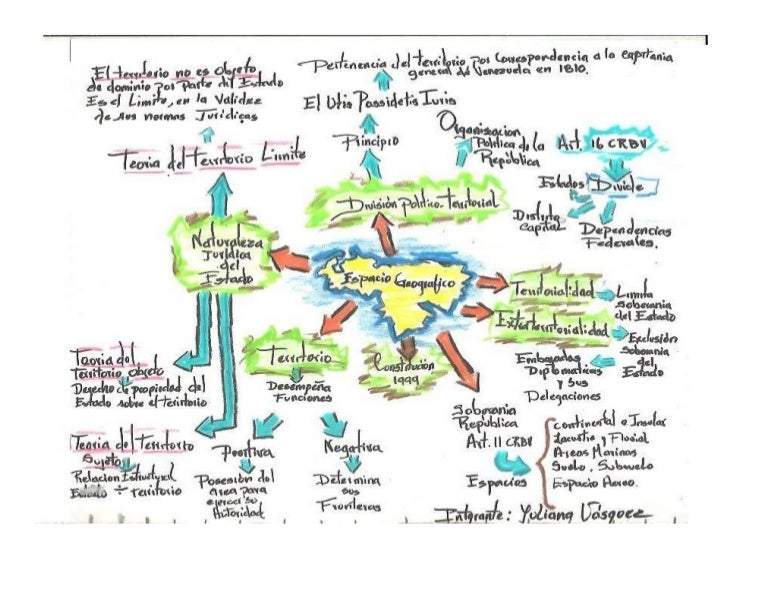 El territorio no es objeto
de dominio por parte del Estado
Es el Limite, en la Validez
de sus normas Jurídicas
Teoria del Territorio Limite
Naturaleza
Jurídica
del
Estado
Pertenencia del territorio por Correspondencia a la capitania
general de Venezuela en 1810.
El Utis Possidetis Iuris
Principio
División Politico-Territorial
Organizacion
Politica de la
República
Art. 16 CRBV
Divide
Estados
Distrito
Capital
Dependencias
Federales.
Espacio Geografico
Territorialidad
Limita
Soberania
del Estado
Extraterritorialidad
Exclusión
Soberania
del
Estado
Embajadas
Diplomaticas
y Sus
Delegaciones
Teoria del
Territorio Objeto
Derecho de propiedad del
Estado sobre el territorio
Teoria del Territorio
Sujeto
Relacion Estructural
Estado ÷ territorio
Territorio
Desempeña
Funciones
Positiva
Posesión del
area para
ejercer su
Autoridad
Negativa
Determina
sus
Fronteras
Constitucion
1999
Soberania
Republica
Art. 11 CRBV
Espacios
continental e Insular
Lacustre y Fluvial
Areas Marinas
Suelo, Subsuelo
Espacio Aereo.
Integrante: Yuliana Vásquez